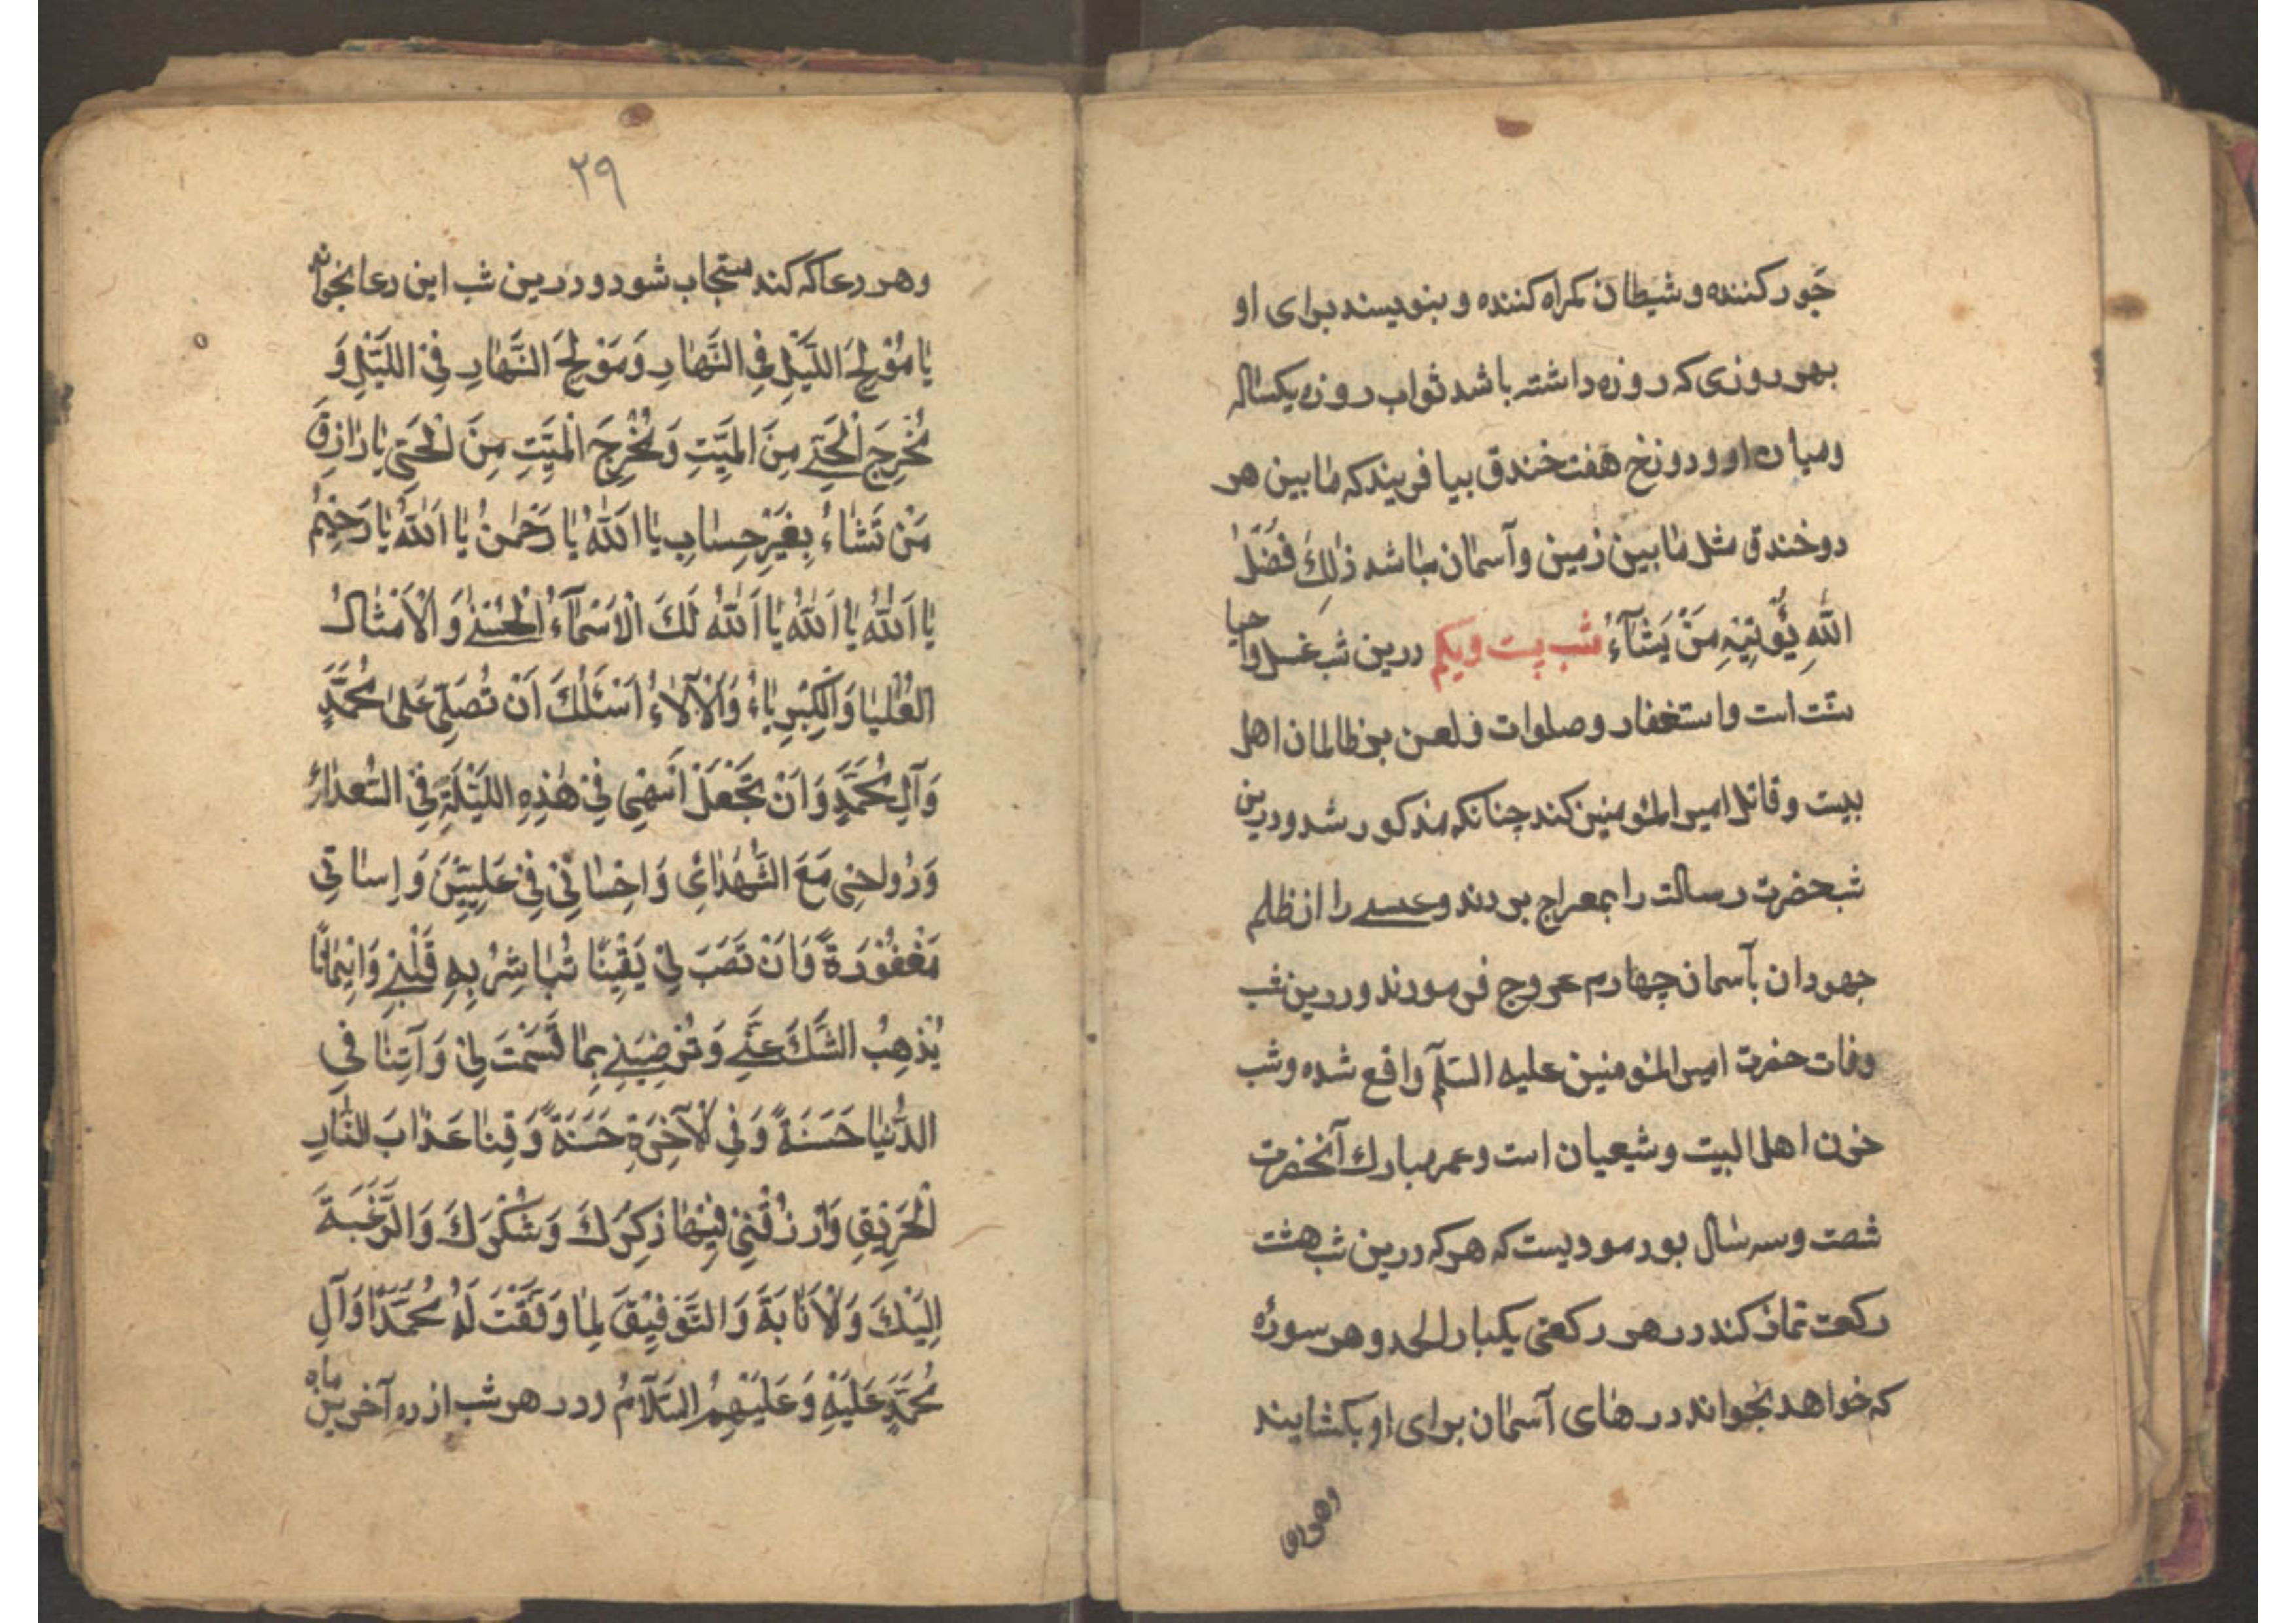 جَور کننده و شیطان کمراه کننده و بنویسند برای او
بهر روزی که روزه داشته باشد ثواب روزه یکساله
ومیان او و دوزخ هفت خندق بیافریند که مابین هر
دو خندق مثل مابین زمین وآسمان باشد ذٰلِكَ فَضْلُ
اللّٰهِ یُؤْتِیْهِ مَنْ یَشٰآءُ شب بیست ویکم درین شب غسل واحیا
سنّت است واستغفار وصلوات و لعن بر ظالمان اهل
بیت و قاتل امیر المؤمنین کند چنانکه مذکور شد ودرین
شب حضرت رسالت را بمعراج بردند وعیسے را از ظلم
جهودان بآسمان چهارم عروج فرمودند ودرین شب
وفات حضرت امیر المؤمنین علیه السّلام واقع شده وشب
حزن اهل البیت وشیعیان است وعمر مبارك آنحضرت
شصت وسه سٰال بود مرویست که هر که درین شب هشت
رکعت نماز کند در هر رکعتی یکبار الحمد و هر سورهٔ
که خواهد بخواند درهای آسمان برای او بکشایند
وهر دعا
٢٩
وهر دعا که کند مستجاب شود و درین شب این دعا بخواند
یٰا مُوْلِجَ اللَّیْلِ فِی النَّهٰارِ وَمُوْلِجَ النَّهٰارِ فِیْ اللَّیْلِ وَ
مُخْرِجَ الْحَیِّ مِنَ المَیِّتِ وَ مُخْرِجَ الْمَیِّتِ مِنَ الْحَیِّ یٰا رٰازِقَ
مَنْ تَشٰاءُ بِغَیْرِ حِسٰابٍ یٰا اَللّٰهُ یٰا رَحْمٰنُ یٰا اَللّٰهُ یٰا رَحِیْمُ
یٰا اَللّٰهُ یٰا اَللّٰهُ یٰا اَللّٰهُ لَكَ الْاَسْمٰآءُ الْحُسْنٰے وَ الْاَمْثٰالُ
العُلْیٰا وَالْکِبْرِیٰاءُ وَالْاٰلاٰءُ اَسْئَلُكَ اَنْ تُصَلِّیَ عَلیٰ مُحَمَّدٍ
وَآلِ مُحَمَّدٍ وَ اَنْ تَجْعَلَ اسْمِیْ فِیْ هٰذِهِ اللَّیْلَةِ فِیْ السُّعَدٰاءِ
وَ رُوْحِیْ مَعَ الشُّهَدٰاءِ وَ اِحْسٰانِیْ فِیْ عَلِیِّیْنَ وَ اِسٰاتِیْ
مَغْفُوْرَةً وَ اَنْ تَهَبَ لِیْ یَقِیْنًا تُبٰاشِرُ بِهِ قَلْبِیْ وَ اِیْمٰانًا
یُذْهِبُ الشَّكَّ عَنِّے وَ تُرْضِیَنِیْ بِمٰا قَسَمْتَ لِیْ وَ آتِنٰا فِی
الدُّنْیٰا حَسَنَةً وَ فِی الْآخِرَةِ حَسَنَةً وَ قِنٰا عَذٰابَ النّٰارِ
الْحَرِیْقِ وَارْزُقْنِیْ فِیْهٰا ذِکْرَكَ وَ شُکْرَكَ وَ الرَّغْبَةَ
اِلَیْكَ وَ لْاَنٰابَةَ وَ التَّوْفِیْقَ لِمٰا وَفَّقْتَ لَهُ مُحَمَّدًا وَ آلِ
مُحَمَّدٍ عَلَیْهِ وَ عَلَیْهِمُ السَّلاٰمُ ودر هر شب از ده آخر این ماه